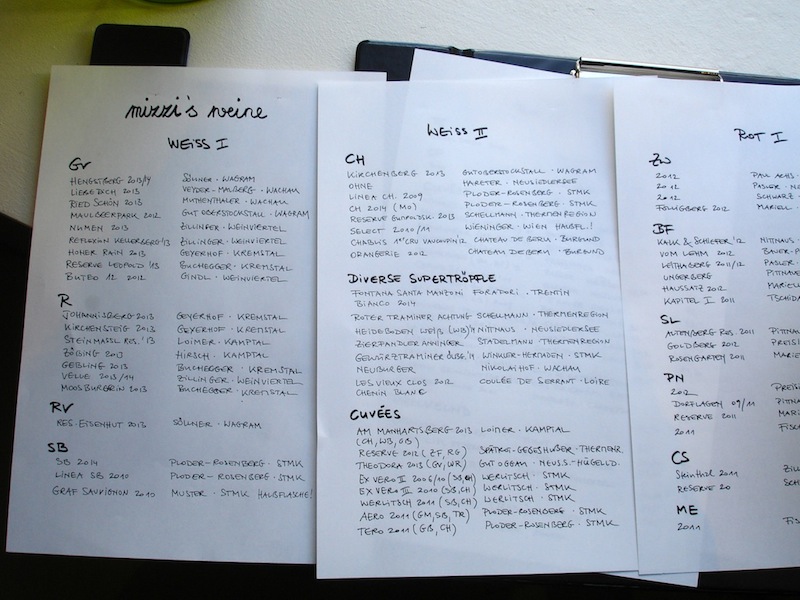 mizzi's weine
WEISS I
GV
HENGSTBERG 2013/14 SÖLLNER · WAGRAM
LIEBEDICH 2013 VEYDER-MALBERG · WACHAU
RIED SCHÖN 2013 MUTHENTHALER · WACHAU
MAULBEERPARK 2012 GUT OBERSTOCKSTALL · WAGRAM
NUMEN 2013 ZILLINGER · WEINVIERTEL
REFLEXION KELLERBERG '13 ZILLINGER · WEINVIERTEL
HOHER RAIN 2013 GEYERHOF · KREMSTAL
RESERVE LEOPOLD '13 BUCHEGGER · KREMSTAL
BUTEO 12 2012 GINDL · WEINVIERTEL
R
JOHANNISBERG 2013 GEYERHOF · KREMSTAL
KIRCHENSTEIG 2013 GEYERHOF · KREMSTAL
STEINMASSL RES. '13 LOIMER · KAMPTAL
ZÖBING 2013 HIRSCH · KAMPTAL
GEBLING 2013 BUCHEGGER · KREMSTAL
VELUE 2013/14 ZILLINGER · WEINVIERTEL
MOOSBURGRIN 2013 BUCHEGGER · KREMSTAL
RV
RES. EISENHUT 2013 SÖLLNER · WAGRAM
SB
SB 2014 PLODER-ROSENBERG · STMK
LINEA SB 2010 PLODER-ROSENBERG · STMK
GRAF SAUVIGNON 2010 MUSTER · STMK HALBFLASCHE!
WEISS II
CH
KIRCHENBERG 2013 GUTOBERSTOCKSTALL · WAGRAM
OHNE HARETER · NEUSIEDLERSEE
LINEA CH. 2009 PLODER-ROSENBERG · STMK
CH 2014 (MO) PLODER-ROSENBERG · STMK
RESERVE GUMPOLDSK. 2013 SCHELLMANN · THERMENREGION
SELECT 2010/11 WIENINGER · WIEN HALBFL.!
CHABLIS 1er CRU VAUCOUPIN '12 CHATEAU DE BERU · BURGUND
ORANGERIE 2012 CHATEAU DE BERU · BURGUND
DIVERSE SUPERTRÖPFLE
FONTANA SANTA MANZONI FORADORI · TRENTIN
BIANCO 2014
ROTER TRAMINER ACHTUNG SCHELLMANN · THERMENREGION
HEIDEBODEN WEIß (WB) '14 NITTNAUS · NEUSIEDLERSEE
ZIERFANDLER ANNINGER STADLMANN · THERMENREGION
GEWÜRZTRAMINER SUBG. '14 WINKLER-HERMADEN · STMK
NEUBURGER NIKOLAIHOF · WACHAU
LES VIEUX CLOS 2012 COULÉE DE SERRANT · LOIRE
CHENIN BLANC
CUVÉES
AM MANHARTSBERG 2013 LOIMER · KAMPTAL
(CH, WB, GB)
RESERVE 2012 (ZF, RG) SPÄTROT-GEBESHUBER · THERMENR.
THEODORA 2013 (GV, WR) GUT OGGAU · NEUS.S-HÜGELLD.
EX VERO II 2006/10 (SB, CH) WERLITSCH · STMK
EX VERO III 2010 (SB, CH) WERLITSCH · STMK
WERLITSCH 2011 (SB, CH) WERLITSCH · STMK
AERO 2011 (GM, SB, TR) PLODER-ROSENBERG · STMK
TERO 2011 (GB, CH) PLODER-ROSENBERG · STMK
ROT I
ZW
2012 PAUL ACHS ·
2012 PASLER · N
2012 SCHWARZ ·
FÖLLIGBERG 2012 MARIELL ·
BF
KALK & SCHIEFER '12 NITTNAUS ·
VOM LEHM 2012 BAUER-P
LEITHABERG 2011/12 PASLER ·
UNGERBERG PITTNAUE
HAUSSATZ 2012 MARIELL
KAPITEL I 2011 TSCHIDA
SL
ALTENBERG RES. 2011 PITTNA
GOLDBERG 2012 PREISI
ROSENGARTEN 2011 MARI
PN
2012 PREIS
DORFLAGEN 09/11 PITTNA
RESERVE 2011 MARI
2011 FISC
CS
2011 ZILL
RESERVE 20 SCH
ME
2011 FISC